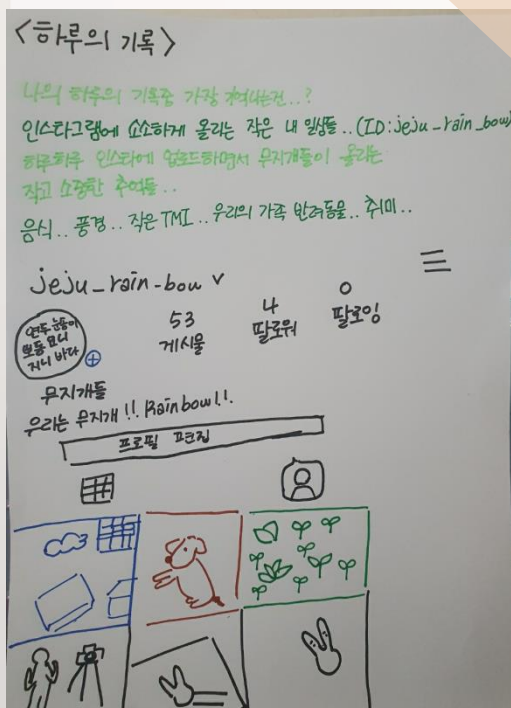 <하루의 기록>
나의 하루의 기록중 가장 기억나는건..?
인스타그램에 소소하게 올리는 작은 내 일상들..(ID:jeju_rain_bow)
하루하루 인스타에 업로드하면서 무지개들이 올리는
작고 소중한 추억들..
음식.. 풍경.. 작은 TMI.. 우리의 가족 반려동물.. 취미..
jeju_rain-bow
53 4 0
게시물 팔로워 팔로잉
연두 눈동이
뽀동 요니
지니 바다
무지개들
우리는 무지개!! Rainbow!!.
프로필 편집